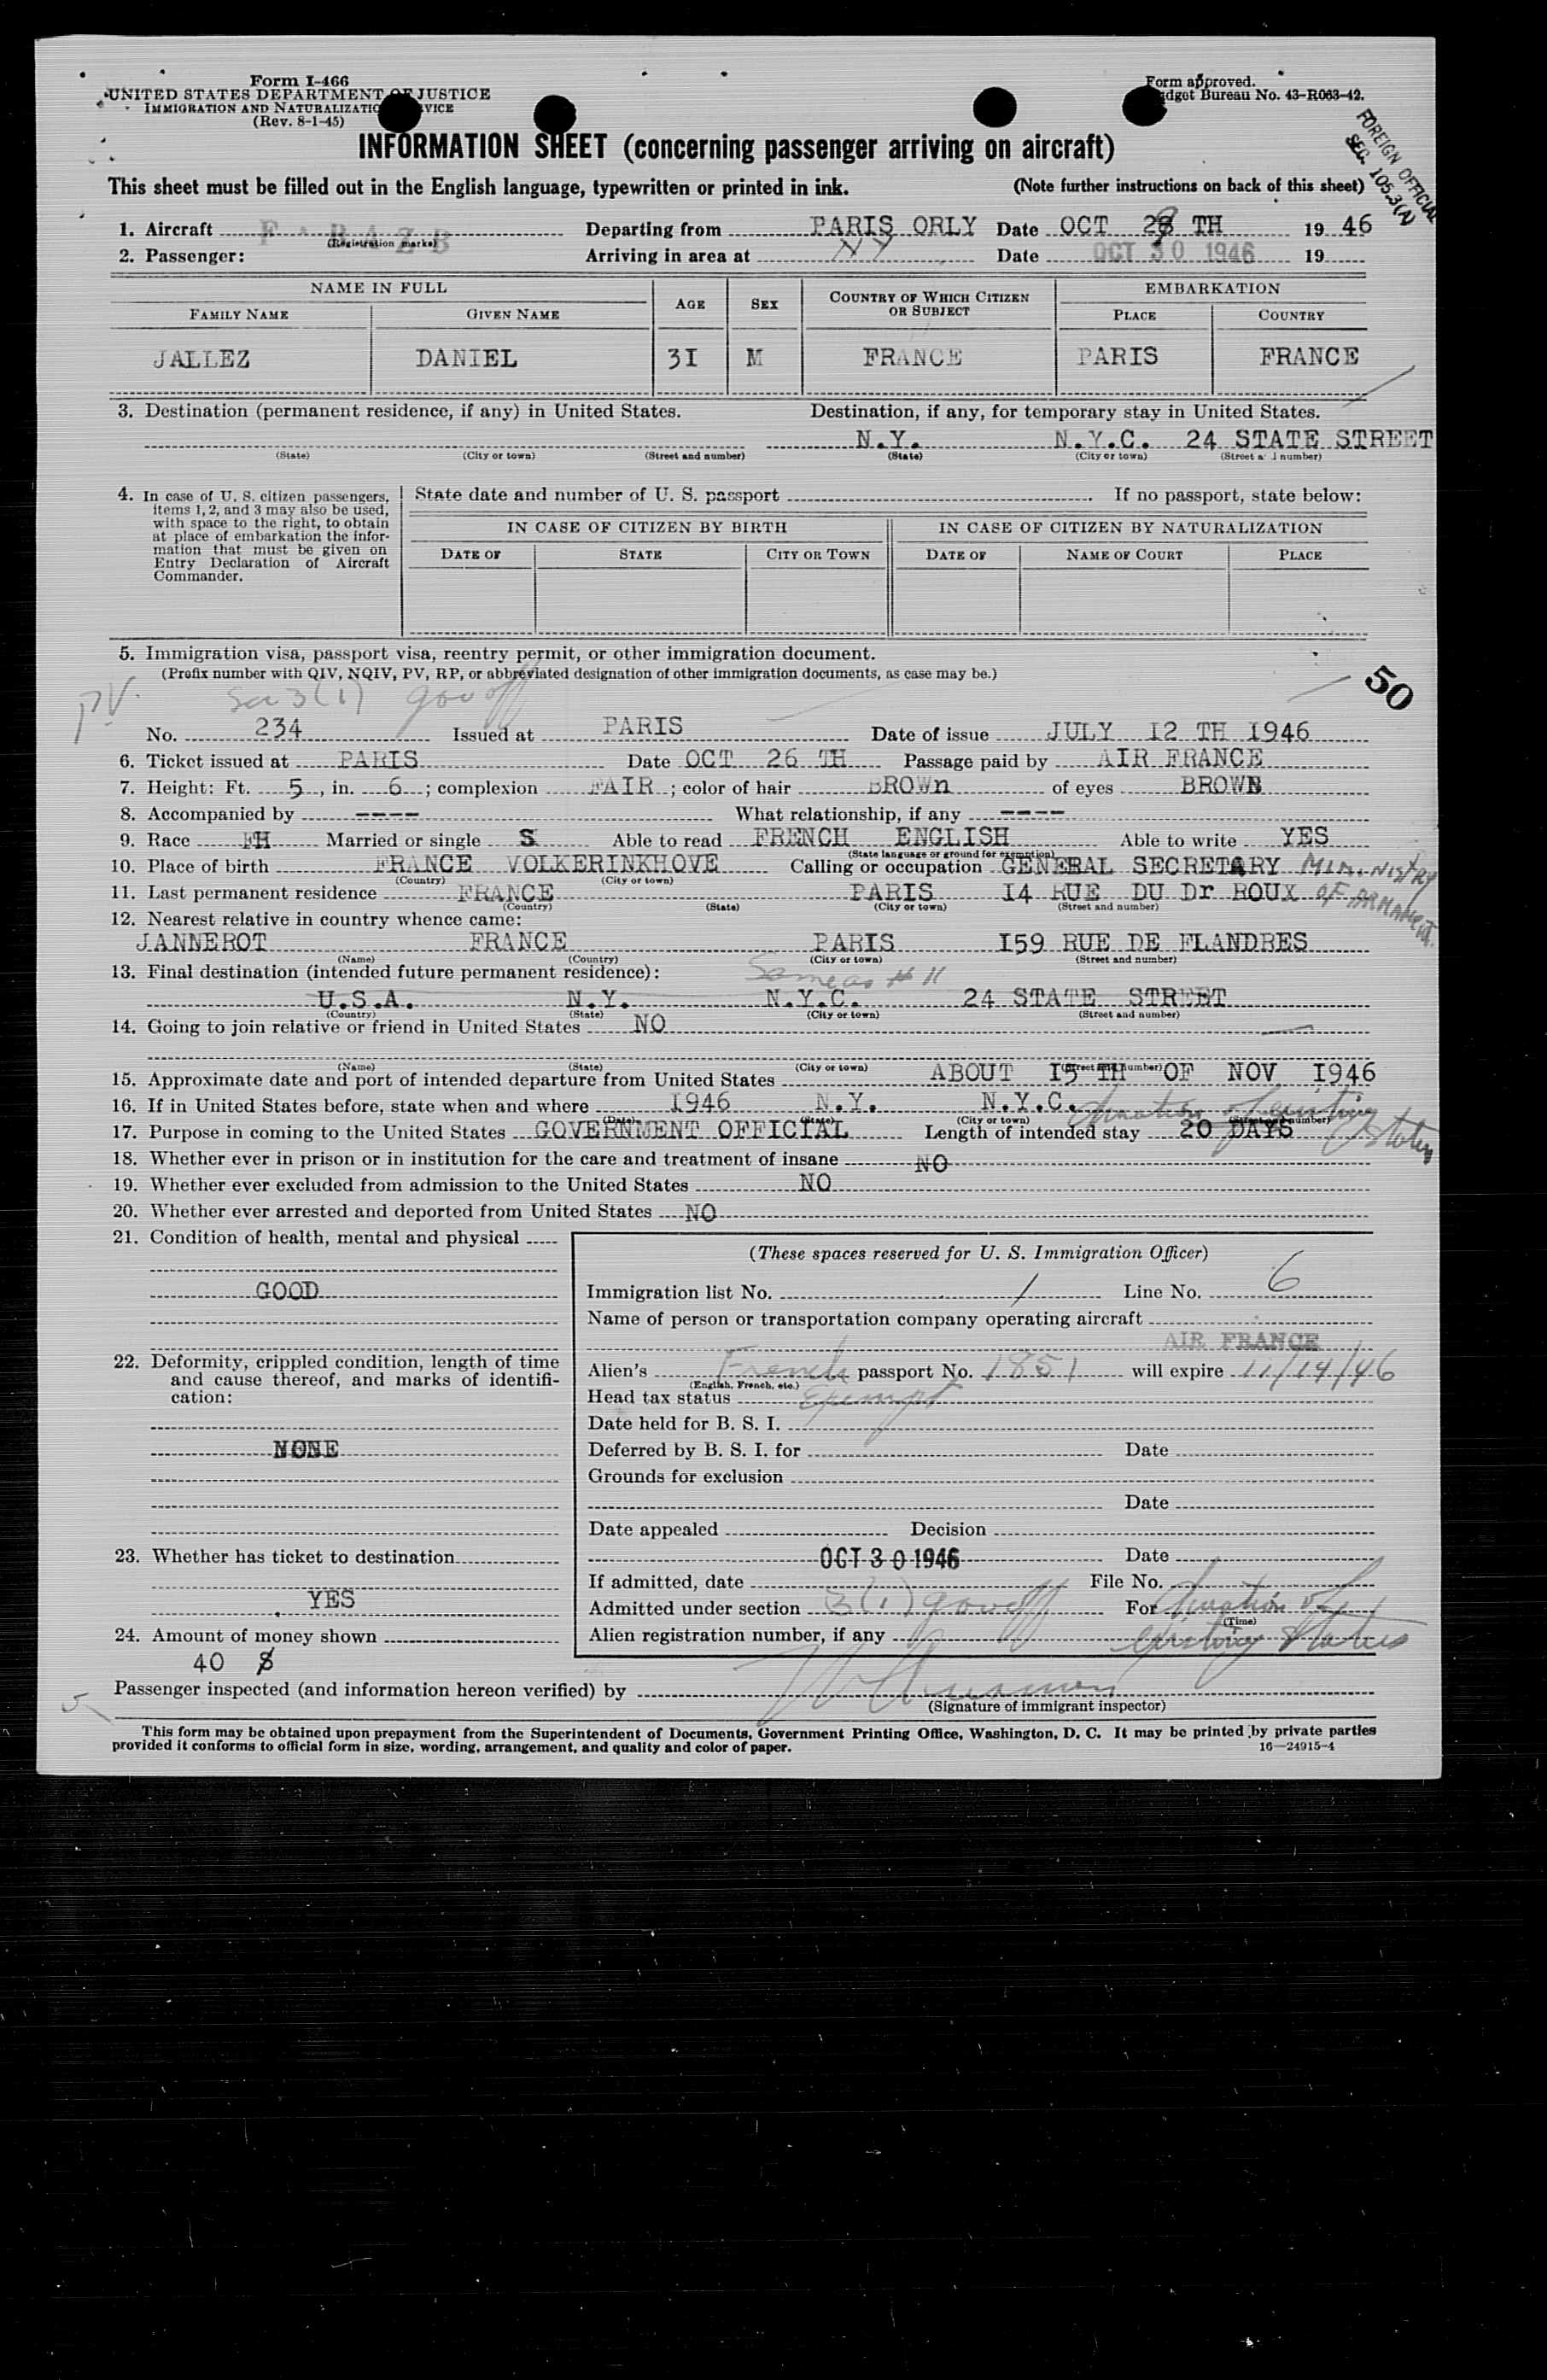 Form I-466
UNITED STATES DEPARTMENT OF JUSTICE
IMMIGRATION AND NATURALIZATION SERVICE
(Rev. 8-1-45)
Form approved.
Budget Bureau No. 43-R063-42.
FOREIGN OFFICIAL
SEC. 105.3(A)
INFORMATION SHEET (concerning passenger arriving on aircraft)
This sheet must be filled out in the English language, typewritten or printed in ink. (Note further instructions on back of this sheet)
1. Aircraft F-BAZB Departing from PARIS ORLY Date OCT 29 TH 1946
(Registration marks)
2. Passenger: Arriving in area at NY Date OCT 30 1946 19
NAME IN FULL AGE SEX COUNTRY OF WHICH CITIZEN OR SUBJECT EMBARKATION
FAMILY NAME GIVEN NAME PLACE COUNTRY
JALLEZ DANIEL 3I M FRANCE PARIS FRANCE
3. Destination (permanent residence, if any) in United States. Destination, if any, for temporary stay in United States.
N.Y. N.Y.C. 24 STATE STREET
(State) (City or town) (Street and number) (State) (City or town) (Street and number)
4. In case of U. S. citizen passengers, items 1, 2, and 3 may also be used, with space to the right, to obtain at place of embarkation the information that must be given on Entry Declaration of Aircraft Commander.
State date and number of U. S. passport . If no passport, state below:
IN CASE OF CITIZEN BY BIRTH IN CASE OF CITIZEN BY NATURALIZATION
DATE OF STATE CITY OR TOWN DATE OF NAME OF COURT PLACE
5. Immigration visa, passport visa, reentry permit, or other immigration document.
(Prefix number with QIV, NQIV, PV, RP, or abbreviated designation of other immigration documents, as case may be.)
50
PV Sec 3(1) gov off
No. 234 Issued at PARIS Date of issue JULY I2 TH I946
6. Ticket issued at PARIS Date OCT 26 TH Passage paid by AIR FRANCE
7. Height: Ft. 5, in. 6; complexion FAIR; color of hair BROWn of eyes BROWN
8. Accompanied by ---- What relationship, if any ----
9. Race FH Married or single S Able to read FRENCH ENGLISH Able to write YES
(State language or ground for exemption)
10. Place of birth FRANCE VOLKERINKHOVE Calling or occupation GENERAL SECRETARY MINISTRY OF ARMAMENT
(Country) (City or town)
11. Last permanent residence FRANCE PARIS I4 RUE DU Dr ROUX
(Country) (State) (City or town) (Street and number)
12. Nearest relative in country whence came:
JANNEROT FRANCE PARIS I59 RUE DE FLANDRES
(Name) (Country) (City or town) (Street and number)
13. Final destination (intended future permanent residence): Same as # 11
U.S.A. N.Y. N.Y.C. 24 STATE STREET
(Country) (State) (City or town) (Street and number)
14. Going to join relative or friend in United States NO
(Name) (State) (City or town) (Street and number)
15. Approximate date and port of intended departure from United States ABOUT I5 TH OF NOV I946
16. If in United States before, state when and where I946 N.Y. N.Y.C.
(Date) (State) (City or town) (Street and number)
duration of existing status
17. Purpose in coming to the United States GOVERNMENT OFFICIAL Length of intended stay 20 DAYS
18. Whether ever in prison or in institution for the care and treatment of insane NO
19. Whether ever excluded from admission to the United States NO
20. Whether ever arrested and deported from United States NO
21. Condition of health, mental and physical
GOOD
22. Deformity, crippled condition, length of time and cause thereof, and marks of identification:
NONE
23. Whether has ticket to destination
YES
24. Amount of money shown
40 $
(These spaces reserved for U. S. Immigration Officer)
Immigration list No. 1 Line No. 6
Name of person or transportation company operating aircraft
AIR FRANCE
Alien's French passport No. 1851 will expire 11/14/46
(English, French, etc.)
Head tax status Exempt
Date held for B. S. I.
Deferred by B. S. I. for Date
Grounds for exclusion
Date
Date appealed Decision
OCT 30 1946 Date
If admitted, date File No.
Admitted under section 3(1) gov off For duration of
(Time)
Alien registration number, if any existing status
Passenger inspected (and information hereon verified) by
(Signature of immigrant inspector)
This form may be obtained upon prepayment from the Superintendent of Documents, Government Printing Office, Washington, D. C. It may be printed by private parties
provided it conforms to official form in size, wording, arrangement, and quality and color of paper. 16—24915-4